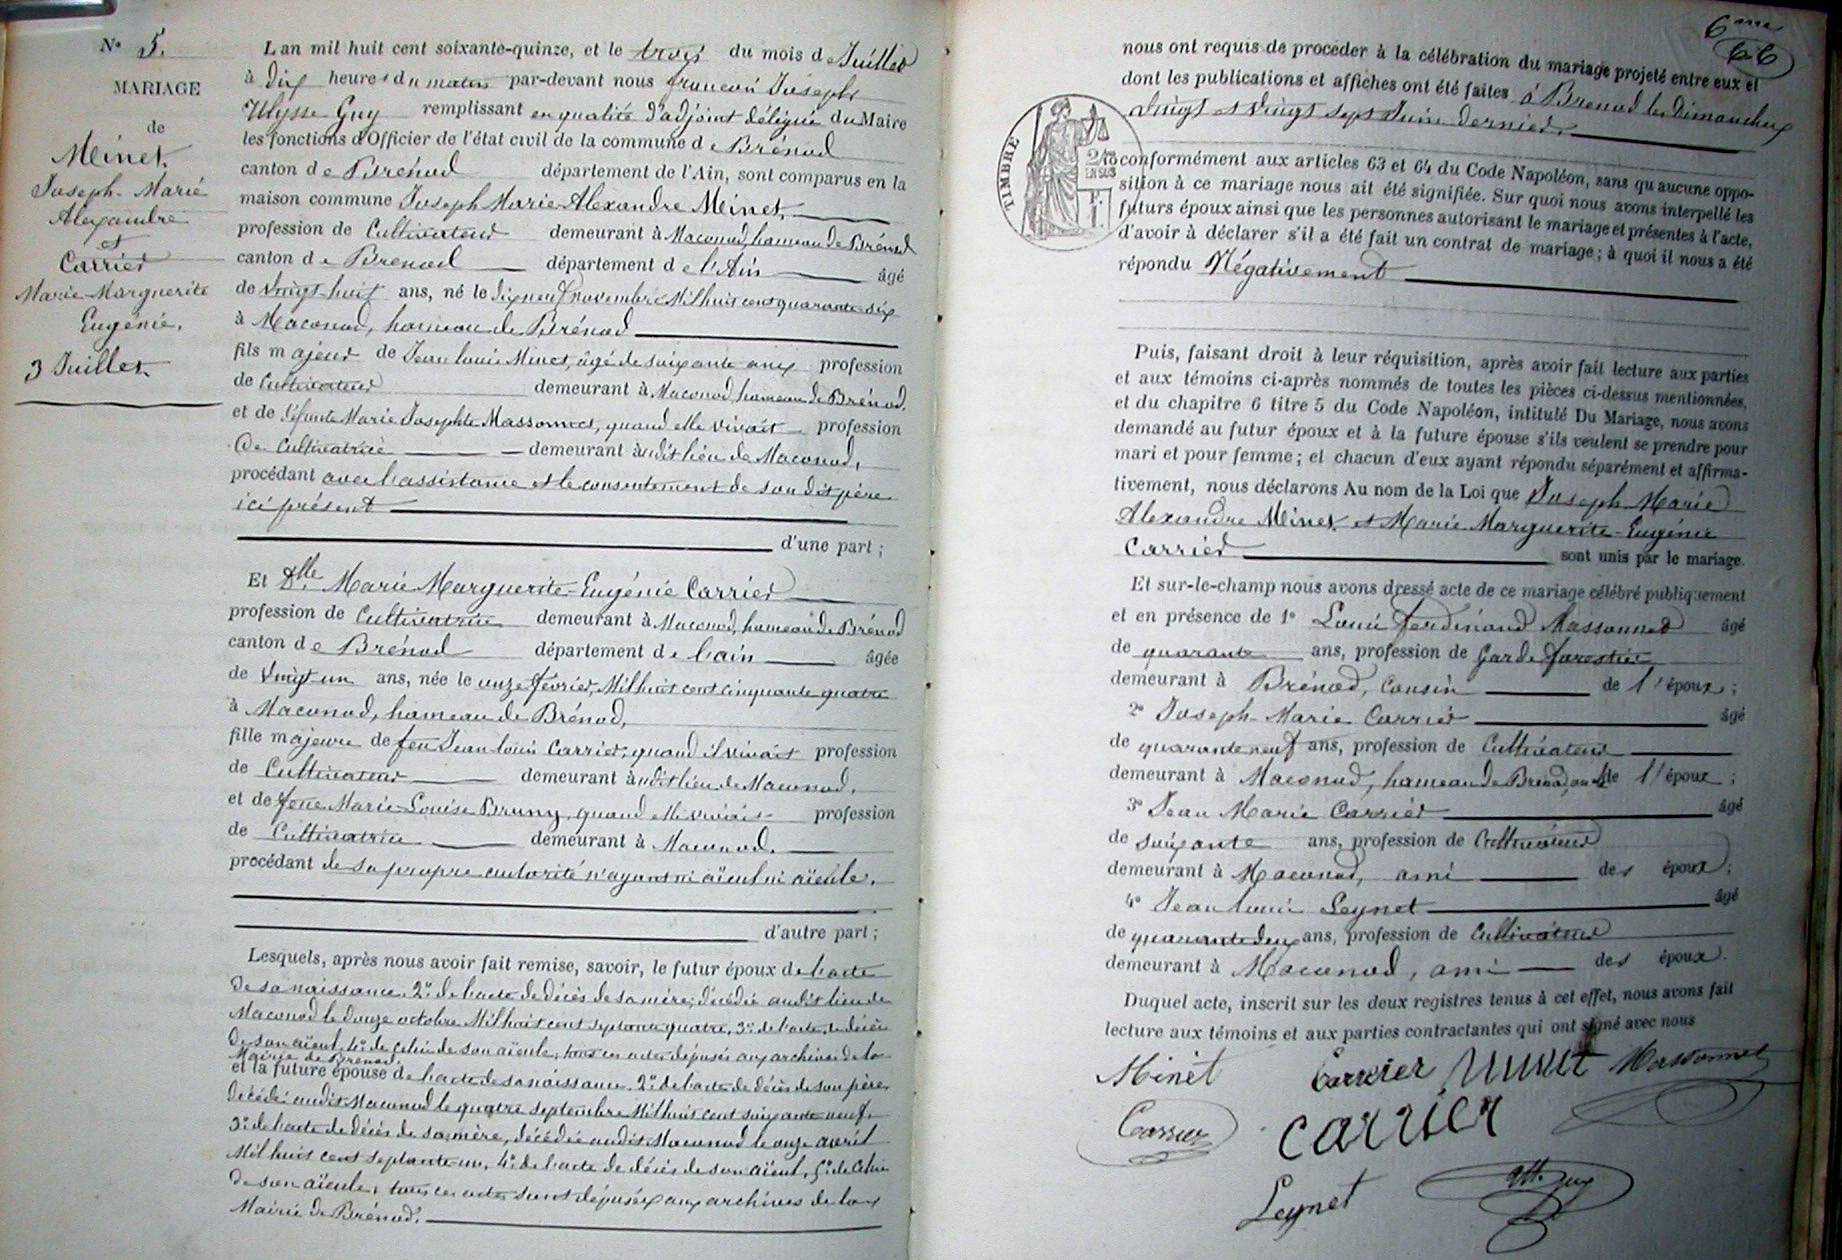 N° 5.
MARIAGE
de
Minet,
Joseph-Marie
Alexandre
et
Carrier
Marie-Marguerite
Eugénie.
3 Juillet.
L'an mil huit cent soixante-quinze, et le trois du mois de Juillet
à dix heures du matin par-devant nous françois Joseph
Ulysse Guy remplissant en qualité d'adjoint délégué du Maire
les fonctions d'Officier de l'état civil de la commune de Brénod
canton de Brénod département de l'Ain, sont comparus en la
maison commune Joseph Marie Alexandre Minet,
profession de Cultivateur demeurant à Maconod, hameau de Brénod
canton de Brenod département de l'Ain âgé
de vingt huit ans, né le dix neuf novembre Mil huit cent quarante six
à Maconod, hameau de Brénod
fils majeur de Jean louis Minet, âgé de soixante ans profession
de Cultivateur demeurant à Maconod, hameau de Brénod.
et de défunte Marie Josephte Massonnet, quand elle vivait profession
de Cultivatrice demeurant audit lieu de Maconod,
procédant avec l'assistance et le consentement de son dit père
ici présent
d'une part ;
Et Dlle Marie Marguerite-Eugénie Carrier
profession de Cultivatrice demeurant à Maconod, hameau de Brénod
canton de Brénod département de l'ain âgée
de vingt-un ans, née le onze février, Mil huit cent cinquante quatre
à Maconod, hameau de Brénod,
fille majeure de feu Jean-louis Carrier, quand il vivait profession
de Cultivateur demeurant audit lieu de Maconod,
et de feue Marie-Louise Bruny, quand elle vivait profession
de Cultivatrice demeurant à Maconod.
procédant de sa propre autorité n'ayant ni aïeul ni aïeule.
d'autre part ;
Lesquels, après nous avoir fait remise, savoir, le futur époux de l'acte
de sa naissance. 2° de l'acte de décès de sa mère, décédée audit lieu de
Maconod le douze octobre Mil huit cent septante quatre, 3° de l'acte de décès
de son aïeul, 4° de celui de son aïeule, tous ces actes déposés aux archives de la
Mairie de Brénod.
et la future épouse de l'acte de sa naissance. 2° de l'acte de décès de son père,
décédé audit Maconod le quatre septembre Mil huit cent soixante neuf.
3° de l'acte de décès de sa mère, décédée audit Maconod le onze avril
Mil huit cent septante un, 4° de l'acte de décès de son aïeul, 5° de celui
de son aïeule, tous ces actes sont déposés aux archives de la
Mairie de Brénod.
6me
66
nous ont requis de procéder à la célébration du mariage projeté entre eux et
dont les publications et affiches ont été faites à Brenod les Dimanches
vingt et vingt sept Juin dernier.
TIMBRE
2/10
EN SUS
conformément aux articles 63 et 64 du Code Napoléon, sans qu'aucune oppo-
sition à ce mariage nous ait été signifiée. Sur quoi nous avons interpellé les
futurs époux ainsi que les personnes autorisant le mariage et présentes à l'acte,
d'avoir à déclarer s'il a été fait un contrat de mariage ; à quoi il nous a été
répondu Négativement
Puis, faisant droit à leur réquisition, après avoir fait lecture aux parties
et aux témoins ci-après nommés de toutes les pièces ci-dessus mentionnées,
et du chapitre 6 titre 5 du Code Napoléon, intitulé Du Mariage, nous avons
demandé au futur époux et à la future épouse s'ils veulent se prendre pour
mari et pour femme ; et chacun d'eux ayant répondu séparément et affirma-
tivement, nous déclarons Au nom de la Loi que Joseph Marie
Alexandre Minet et Marie Marguerite-Eugénie
Carrier sont unis par le mariage.
Et sur-le-champ nous avons dressé acte de ce mariage célébré publiquement
et en présence de 1° Louis ferdinand Massonnet âgé
de quarante ans, profession de Garde forestier
demeurant à Brénod, Cousin de l'époux ;
2° Joseph-Marie Carrier âgé
de quarante neuf ans, profession de Cultivateur
demeurant à Maconod, hameau de Brénod, de l'époux ;
3° Jean Marie Carrier âgé
de soixante ans, profession de Cultivateur
demeurant à Maconod, ami des époux ;
4° Jean louis Leynet âgé
de quarante deux ans, profession de Cultivateur
demeurant à Maconod, ami des époux.
Duquel acte, inscrit sur les deux registres tenus à cet effet, nous avons fait
lecture aux témoins et aux parties contractantes qui ont signé avec nous
Minet Carrier Minet Massonnet
Carrier Carrier
Leynet Guy